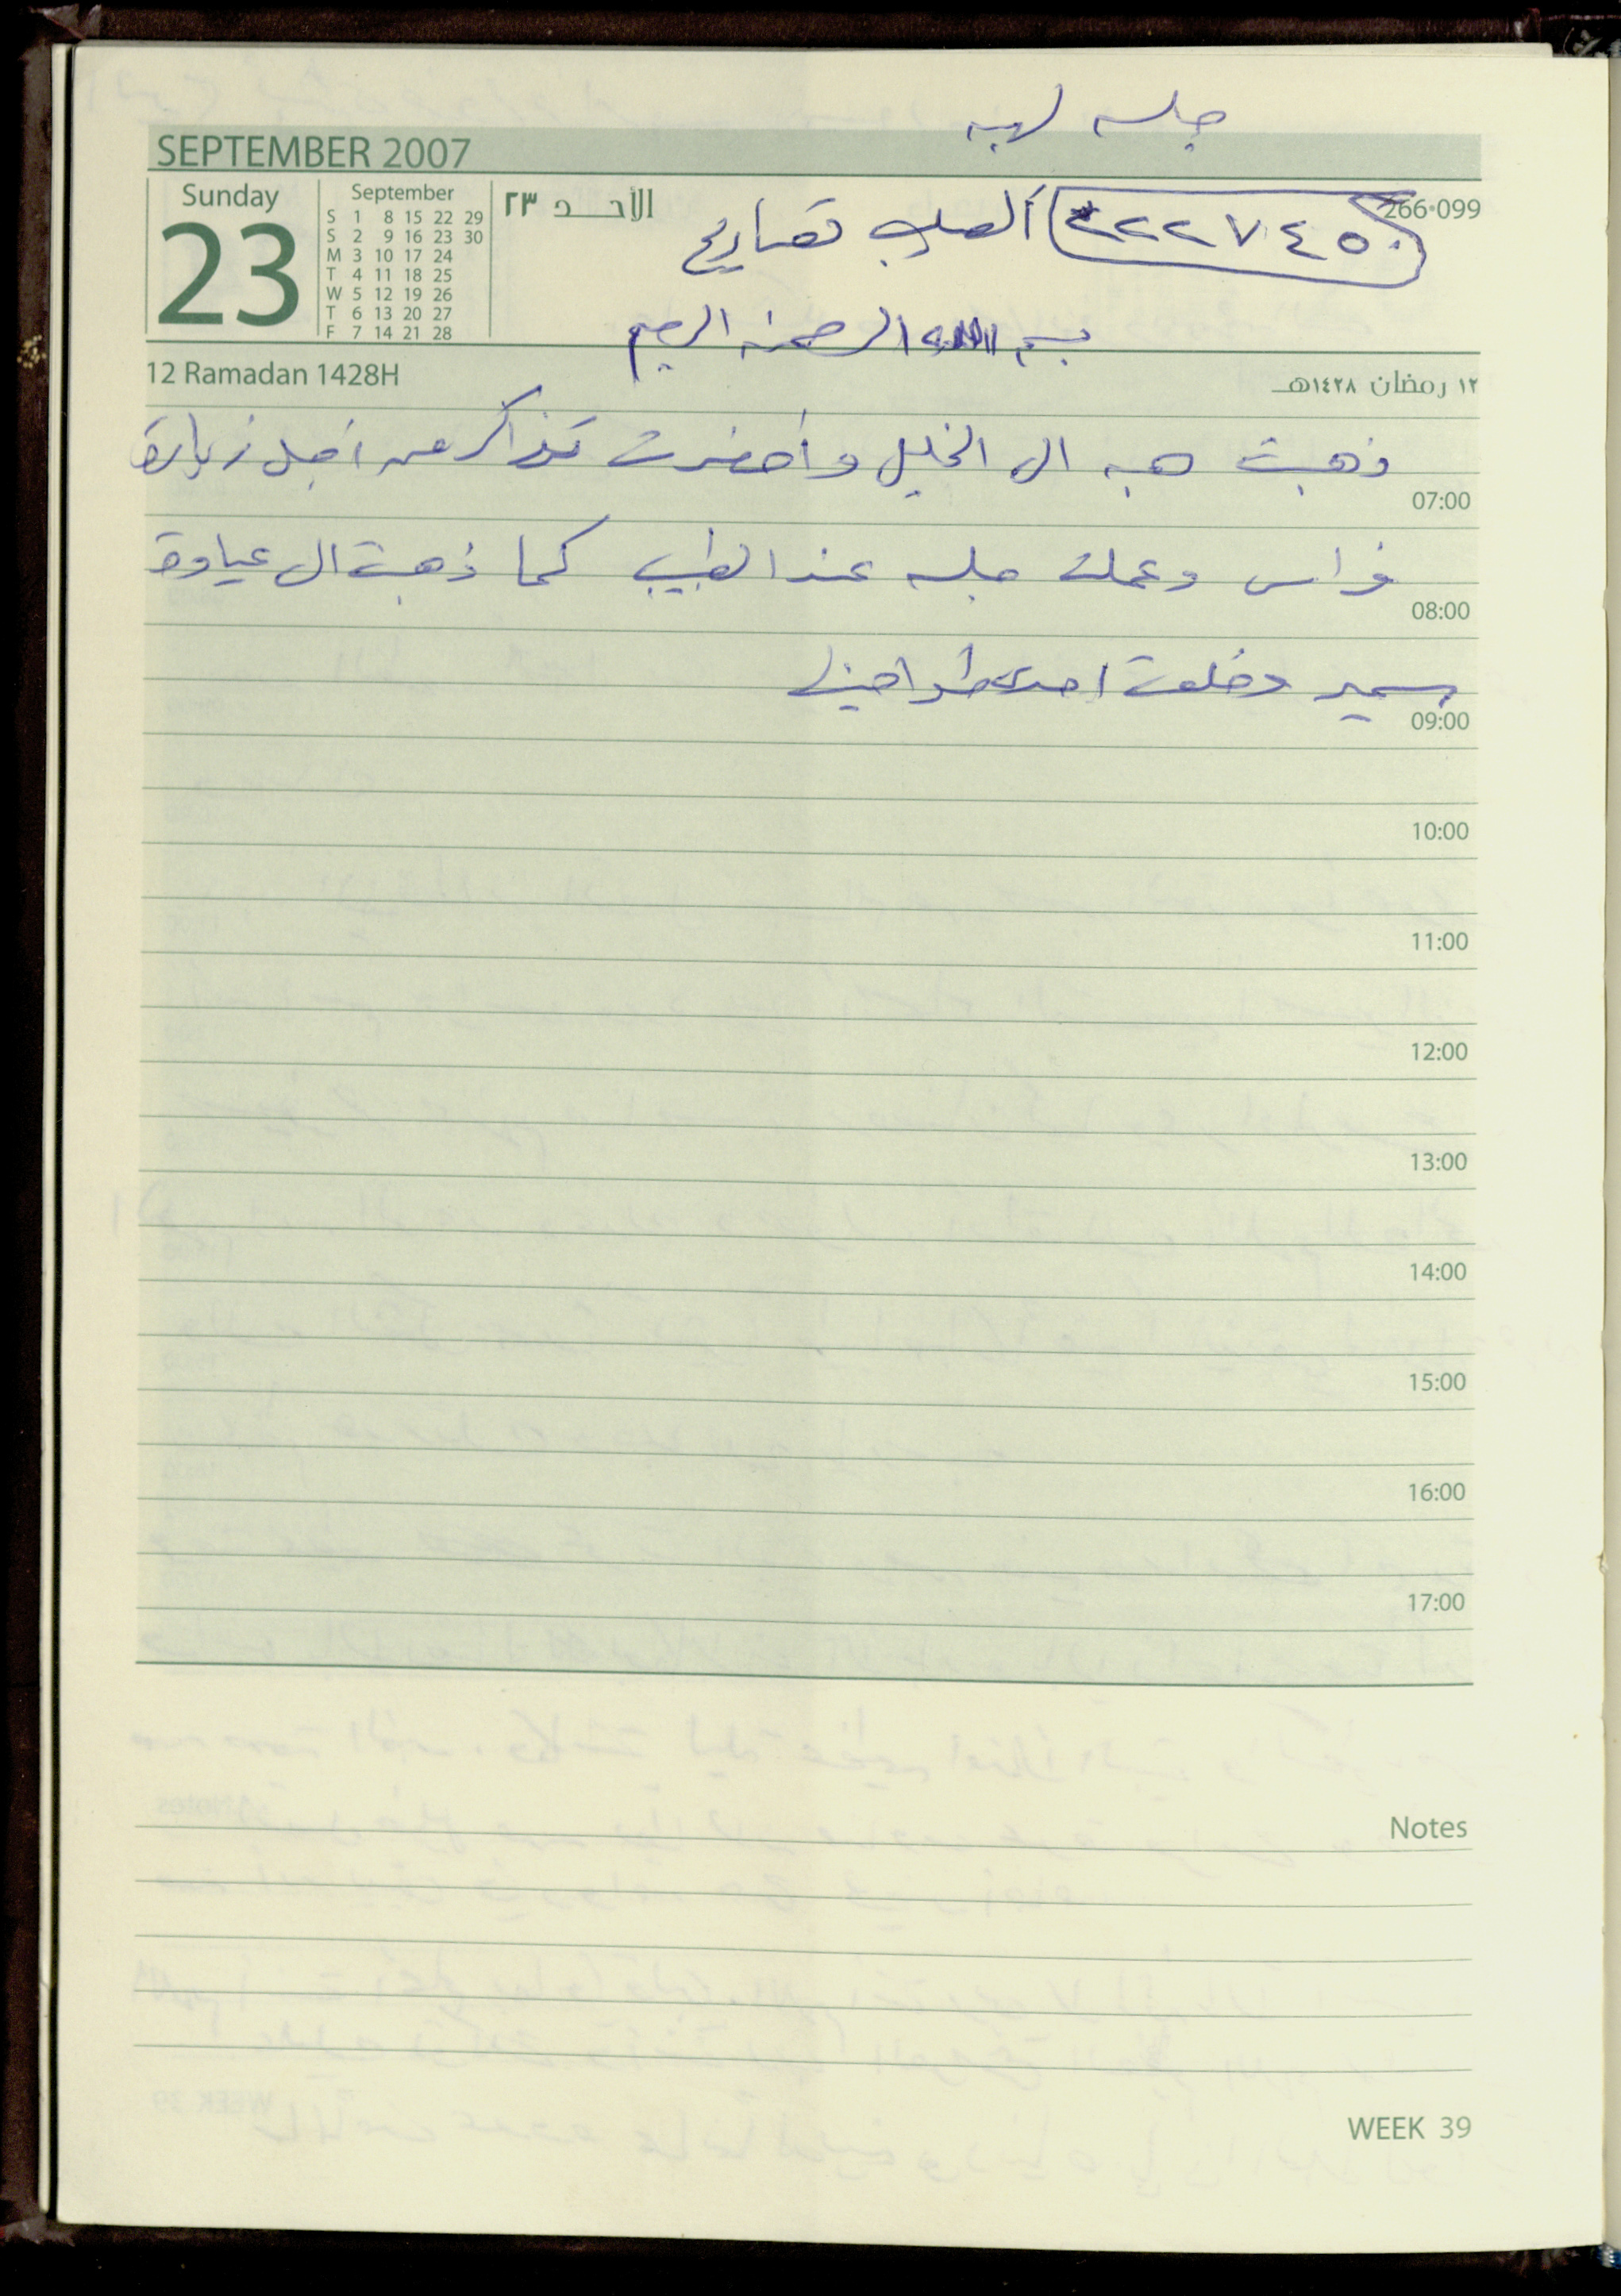 جلسه لهبه
SEPTEMBER 2007
Sunday
23
September
S 1 8 15 22 29
S 2 9 16 23 30
M 3 10 17 24
T 4 11 18 25
W 5 12 19 26
T 6 13 20 27
F 7 14 21 28
الأحد ٢٣
266-099
٢٢٢٧٤٥٠ الصليب تصاريح
بسم الله الرحمن الرحيم
12 Ramadan 1428H
١٢ رمضان ١٤٢٨هـ
ذهبت هبه الى الخليل وأحضرت تذاكر من اجل زيارة
07:00
فراس وعملت جلسه عند الطبيب كما ذهبت الى عيادة
08:00
سمير وخلعت احدى طواحينها
09:00
10:00
11:00
12:00
13:00
14:00
15:00
16:00
17:00
Notes
WEEK 39